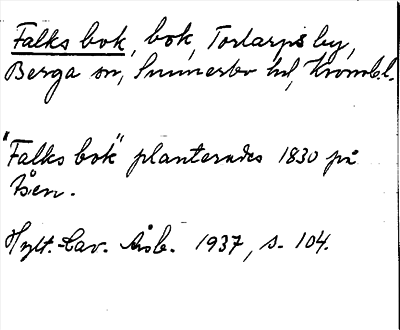 Falks bok, bok, Torlarps by,
Berga sn, Sunnerbo hd, Kronob.l.
"Falks bok" planterades 1830 på
Åsen.
Hylt.-Cav. Årsb. 1937, s. 104.